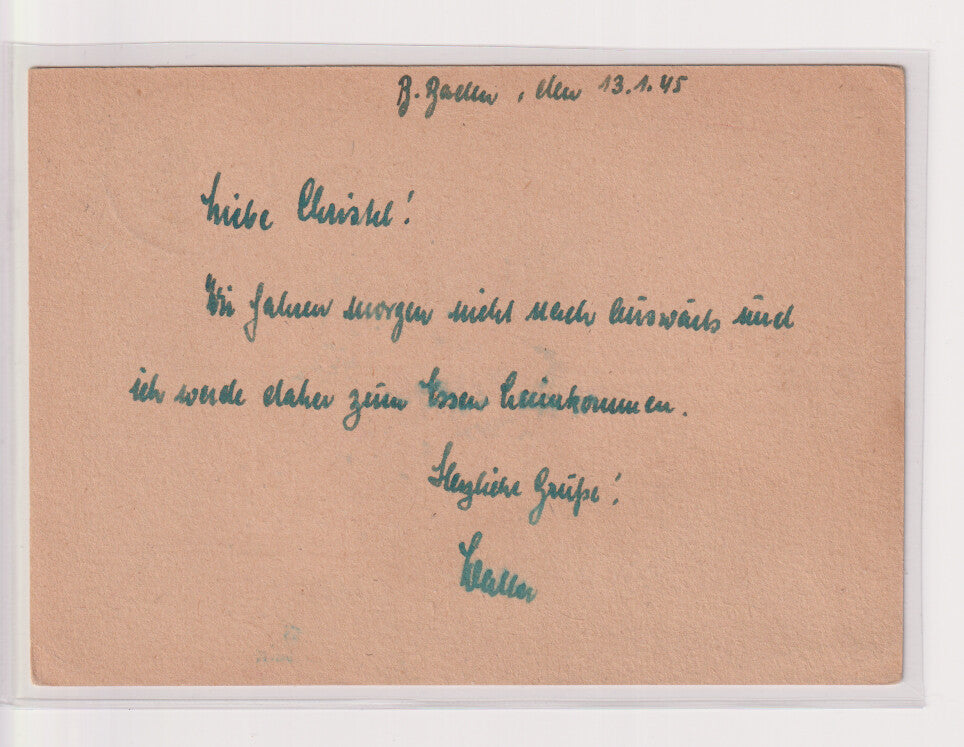 B. Baden, den 13.1.45
Liebe Christel!
Wir fahren morgen nicht nach auswärts und
ich werde daher zum Essen heimkommen.
Herzliche Grüße!
Walter